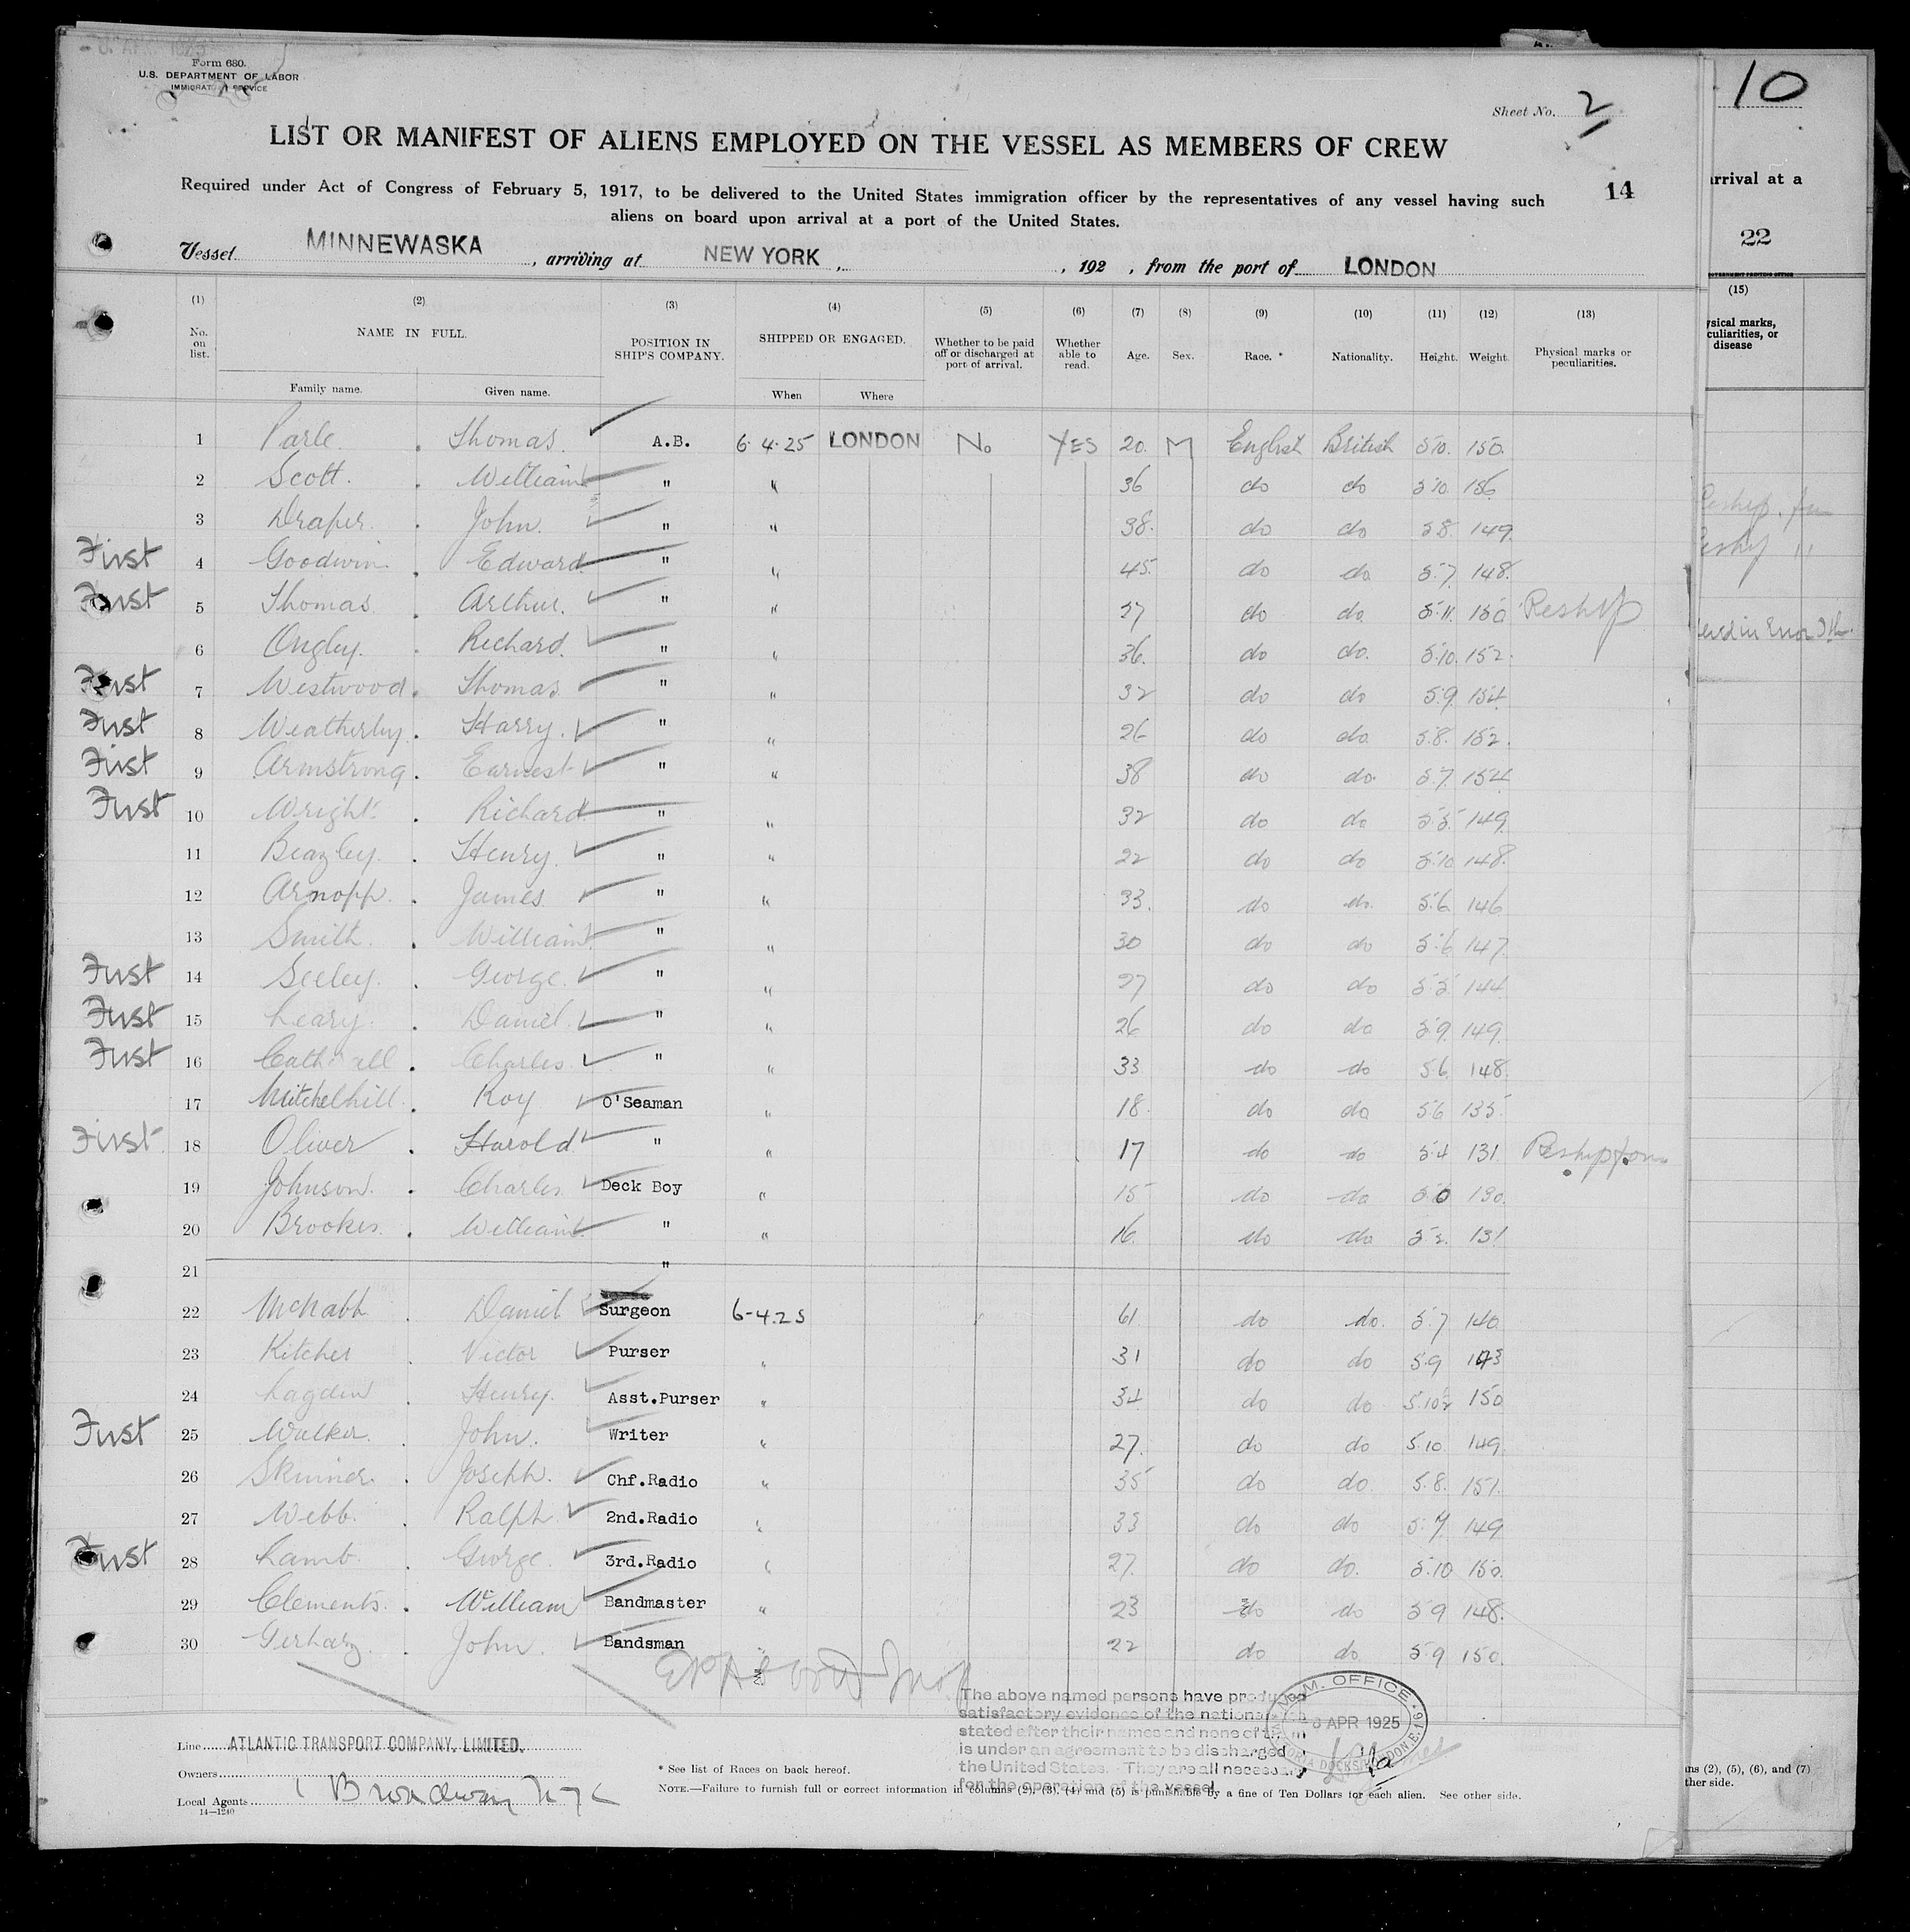 Form 680.
U.S. DEPARTMENT OF LABOR
IMMIGRATION SERVICE
Sheet No. 2
10
LIST OR MANIFEST OF ALIENS EMPLOYED ON THE VESSEL AS MEMBERS OF CREW
Required under Act of Congress of February 5, 1917, to be delivered to the United States immigration officer by the representatives of any vessel having such
aliens on board upon arrival at a port of the United States.
14
arrival at a
22
Vessel MINNEWASKA, arriving at NEW YORK, , 192 , from the port of LONDON
(1) (2) (3) (4) (5) (6) (7) (8) (9) (10) (11) (12) (13) (15)
No. on list. NAME IN FULL. POSITION IN SHIP'S COMPANY. SHIPPED OR ENGAGED. Whether to be paid off or discharged at port of arrival. Whether able to read. Age. Sex. Race. * Nationality. Height. Weight. Physical marks or peculiarities.
Family name. Given name. When Where
1 Parle. Thomas. A.B. 6.4.25 LONDON No YES 20. M English British 5 10. 150.
2 Scott. William " " 36 do do 5 10. 156
3 Draper. John. " " 38. do do 5 8. 149.
First 4 Goodwin. Edward " " 45. do do 5.7. 148.
First 5 Thomas. Arthur. " " 27 do do 5.11. 150 Reship
6 Ongley. Richard. " " 36. do do. 5.10. 152.
First 7 Westwood. Thomas " " 32 do do 5.9. 154.
First 8 Weatherley. Harry. " " 26 do do 5.8. 152.
First 9 Armstrong. Earnest " " 38 do do. 5.7. 154
First 10 Wright. Richard " " 32 do do 5.5. 149.
11 Beazley. Henry. " " 22 do do 5.10 148.
12 Arnopp. James. " " 33. do do. 5.6. 146
13 Smith. William " " 30 do do 5.6 147.
First 14 Seeley. George. " " 27 do do 5.5 144
First 15 Leary. Daniel. " " 26 do do 5.9. 149.
First 16 Charles. " " 33 do do 5.6. 148.
17 Mitchelhill. Roy O'Seaman " 18. do do 5.6 135.
First 18 Oliver Harold " " 17 do do 5.4 131.
19 Johnson. Charles Deck Boy " 15 do do 5.0 130.
20 Brookes. William " " 16. do do 5.2. 131
21 "
22 McNabb Daniel Surgeon 6-4.25 61 do do. 5.7 140
23 Kitcher Victor Purser " 31 do do 5.9
24 Lagden Henry. Asst.Purser " 34 do do 5.10½ 150
First 25 Walker. John. Writer " 27. do do 5.10. 149.
26 Skinner. Joseph. Chf.Radio " 35 do do. 5.8. 151.
27 Webb. Ralph 2nd.Radio " 33 do do 5.7 149
First 28 Lamb. George. 3rd.Radio " 27. do do. 5.10 150.
29 Clements. William Bandmaster " 23 do do 5.9 148.
30 Gerharz. John. Bandsman 22 do do. 5.9 150.
The above named persons have produced
satisfactory evidence of the nationality
stated after their names and none of them
is under an agreement to be discharged
the United States. They are all necessary
for the operation of the vessel.
M.M. OFFICE
8 APR 1925
VICTORIA DOCKS, LONDON E.16
Line ATLANTIC TRANSPORT COMPANY, LIMITED.
Owners
Local Agents 1 Broadway NYC
14—1240
* See list of Races on back hereof.
NOTE.—Failure to furnish full or correct information in columns (2), (3), (4) and (5) is punishable by a fine of Ten Dollars for each alien. See other side.